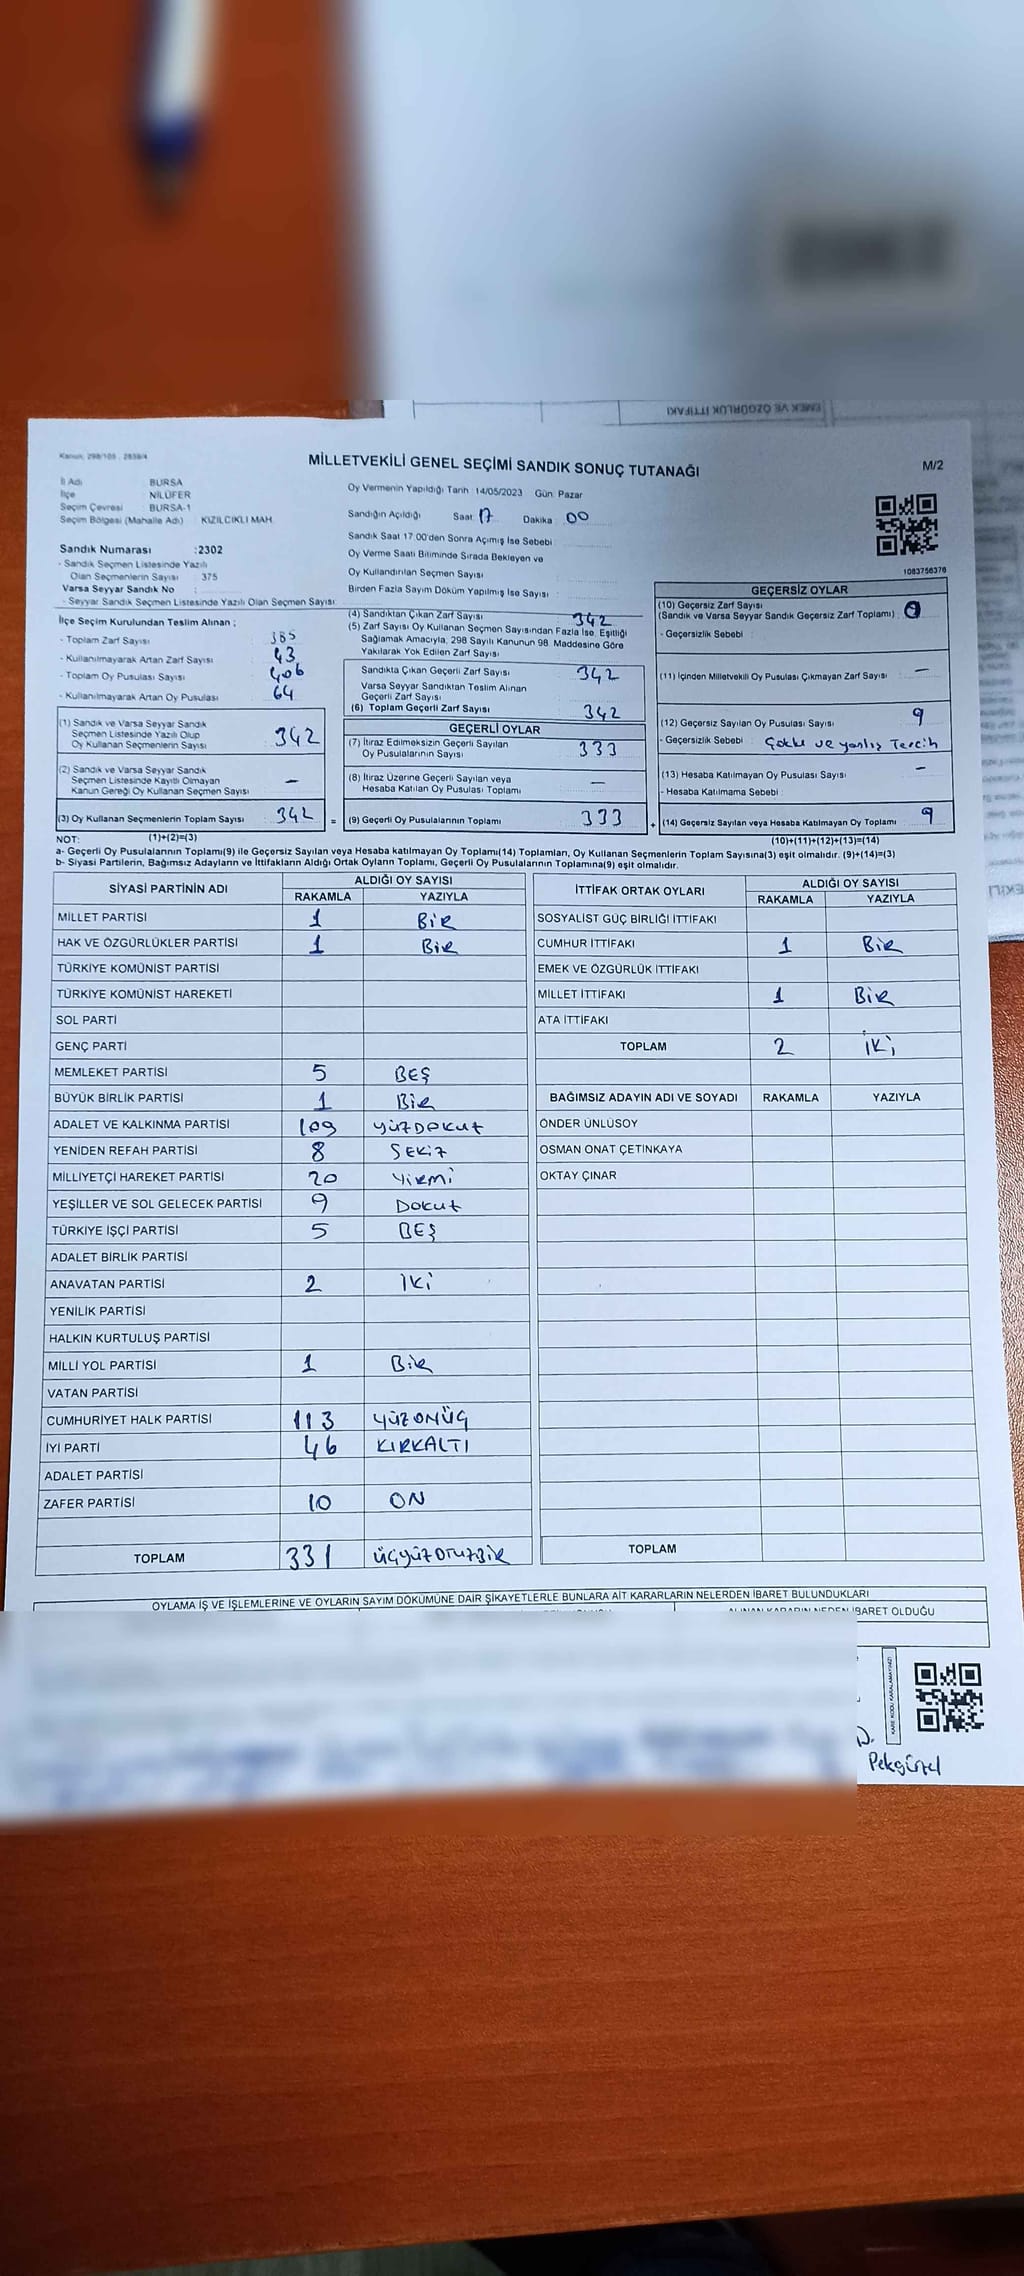 EMEK VE ÖZGÜRLÜK İTTİFAKI
MİLLETVEKİLİ GENEL SEÇİMİ SANDIK SONUÇ TUTANAĞI
M/2
İl Adı BURSA
İlçe NİLÜFER
Seçim Çevresi BURSA-1
Seçim Bölgesi (Mahalle Adı) KIZILCIKLI MAH.
Oy Vermenin Yapıldığı Tarih : 14/05/2023 Gün: Pazar
Sandığın Açıldığı Saat 17 Dakika : 00
Sandık Saat 17:00'den Sonra Açımış İse Sebebi
Oy Verme Saati Bitiminde Sırada Bekleyen ve
Oy Kullandırılan Seçmen Sayısı
Birden Fazla Sayım Döküm Yapılmış İse Sayısı :
1083756376
Sandık Numarası :2302
- Sandık Seçmen Listesinde Yazılı
Olan Seçmenlerin Sayısı : 375
Varsa Seyyar Sandık No :
- Seyyar Sandık Seçmen Listesinde Yazılı Olan Seçmen Sayısı:
İlçe Seçim Kurulundan Teslim Alınan ;
- Toplam Zarf Sayısı 385
- Kullanılmayarak Artan Zarf Sayısı 43
- Toplam Oy Pusulası Sayısı 406
- Kullanılmayarak Artan Oy Pusulası 64
(1) Sandık ve Varsa Seyyar Sandık
Seçmen Listesinde Yazılı Olup
Oy Kullanan Seçmenlerin Sayısı : 342
(2) Sandık ve Varsa Seyyar Sandık
Seçmen Listesinde Kayıtlı Olmayan
Kanun Gereği Oy Kullanan Seçmen Sayısı : —
(3) Oy Kullanan Seçmenlerin Toplam Sayısı : 342 =
(1)+(2)=(3)
(4) Sandıktan Çıkan Zarf Sayısı : 342
(5) Zarf Sayısı Oy Kullanan Seçmen Sayısından Fazla İse, Eşitliği
Sağlamak Amacıyla, 298 Sayılı Kanunun 98. Maddesine Göre
Yakılarak Yok Edilen Zarf Sayısı
Sandıkta Çıkan Geçerli Zarf Sayısı : 342
Varsa Seyyar Sandıktan Teslim Alınan
Geçerli Zarf Sayısı
(6) Toplam Geçerli Zarf Sayısı : 342
GEÇERLİ OYLAR
(7) İtiraz Edilmeksizin Geçerli Sayılan
Oy Pusulalarının Sayısı : 333
(8) İtiraz Üzerine Geçerli Sayılan veya
Hesaba Katılan Oy Pusulası Toplamı : —
(9) Geçerli Oy Pusulalarının Toplamı : 333 +
GEÇERSİZ OYLAR
(10) Geçersiz Zarf Sayısı
(Sandık ve Varsa Seyyar Sandık Geçersiz Zarf Toplamı)
- Geçersizlik Sebebi :
(11) İçinden Milletvekili Oy Pusulası Çıkmayan Zarf Sayısı : —
(12) Geçersiz Sayılan Oy Pusulası Sayısı : 9
- Geçersizlik Sebebi : Çoklu ve yanlış Tercih
(13) Hesaba Katılmayan Oy Pusulası Sayısı : —
- Hesaba Katılmama Sebebi :
(14) Geçersiz Sayılan veya Hesaba Katılmayan Oy Toplamı : 9
(10)+(11)+(12)+(13)=(14)
NOT:
a- Geçerli Oy Pusulalarının Toplamı(9) ile Geçersiz Sayılan veya Hesaba katılmayan Oy Toplamı(14) Toplamları, Oy Kullanan Seçmenlerin Toplam Sayısına(3) eşit olmalıdır. (9)+(14)=(3)
b- Siyasi Partilerin, Bağımsız Adayların ve İttifakların Aldığı Ortak Oyların Toplamı, Geçerli Oy Pusulalarının Toplamına(9) eşit olmalıdır.
SİYASİ PARTİNİN ADI ALDIĞI OY SAYISI
RAKAMLA YAZIYLA
MİLLET PARTİSİ 1 BİR
HAK VE ÖZGÜRLÜKLER PARTİSİ 1 BİR
TÜRKİYE KOMÜNİST PARTİSİ
TÜRKİYE KOMÜNİST HAREKETİ
SOL PARTİ
GENÇ PARTİ
MEMLEKET PARTİSİ 5 BEŞ
BÜYÜK BİRLİK PARTİSİ 1 BİR
ADALET VE KALKINMA PARTİSİ 109 YÜZDOKUZ
YENİDEN REFAH PARTİSİ 8 SEKİZ
MİLLİYETÇİ HAREKET PARTİSİ 20 YİRMİ
YEŞİLLER VE SOL GELECEK PARTİSİ 9 DOKUZ
TÜRKİYE İŞÇİ PARTİSİ 5 BEŞ
ADALET BİRLİK PARTİSİ
ANAVATAN PARTİSİ 2 İKİ
YENİLİK PARTİSİ
HALKIN KURTULUŞ PARTİSİ
MİLLİ YOL PARTİSİ 1 BİR
VATAN PARTİSİ
CUMHURİYET HALK PARTİSİ 113 YÜZONÜÇ
İYİ PARTİ 46 KIRKALTI
ADALET PARTİSİ
ZAFER PARTİSİ 10 ON
TOPLAM 331 ÜÇYÜZOTUZBİR
İTTİFAK ORTAK OYLARI ALDIĞI OY SAYISI
RAKAMLA YAZIYLA
SOSYALİST GÜÇ BİRLİĞİ İTTİFAKI
CUMHUR İTTİFAKI 1 BİR
EMEK VE ÖZGÜRLÜK İTTİFAKI
MİLLET İTTİFAKI 1 BİR
ATA İTTİFAKI
TOPLAM 2 İKİ
BAĞIMSIZ ADAYIN ADI VE SOYADI RAKAMLA YAZIYLA
ÖNDER ÜNLÜSOY
OSMAN ONAT ÇETİNKAYA
OKTAY ÇINAR
TOPLAM
OYLAMA İŞ VE İŞLEMLERİNE VE OYLARIN SAYIM DÖKÜMÜNE DAİR ŞİKAYETLERLE BUNLARA AİT KARARLARIN NELERDEN İBARET BULUNDUKLARI
ALINAN KARARIN NEDEN İBARET OLDUĞU
KARE KODU KARALAMAYINIZ!
Pekgüzel